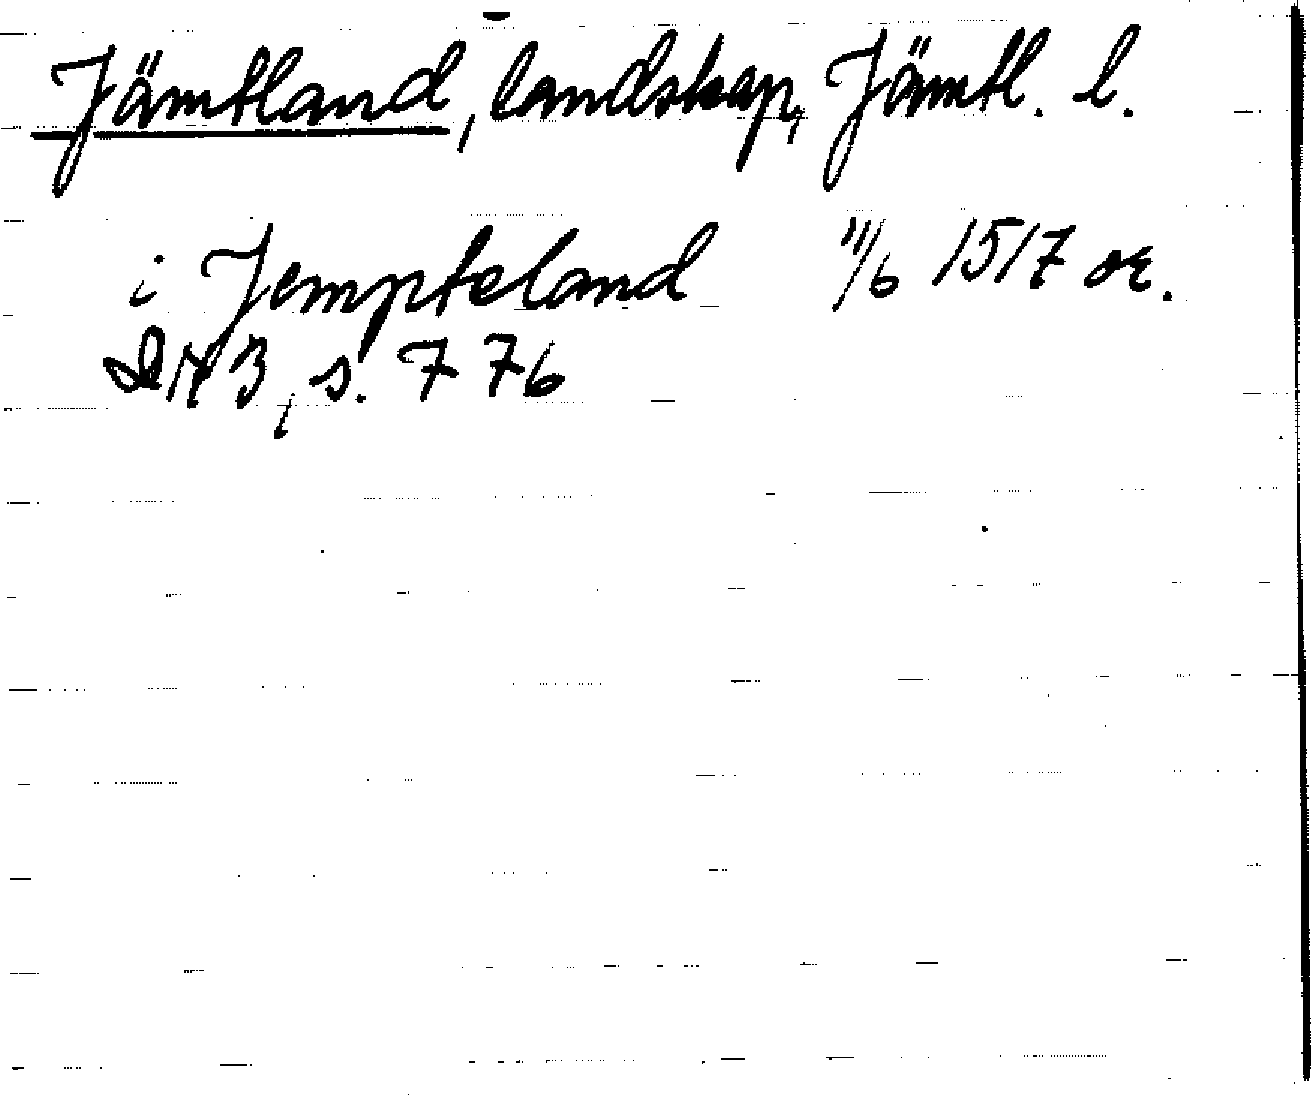 Jämtland, landskap, Jämtl. l.
i Jempteland 11/6 1517 or.
DN 3, s. 776